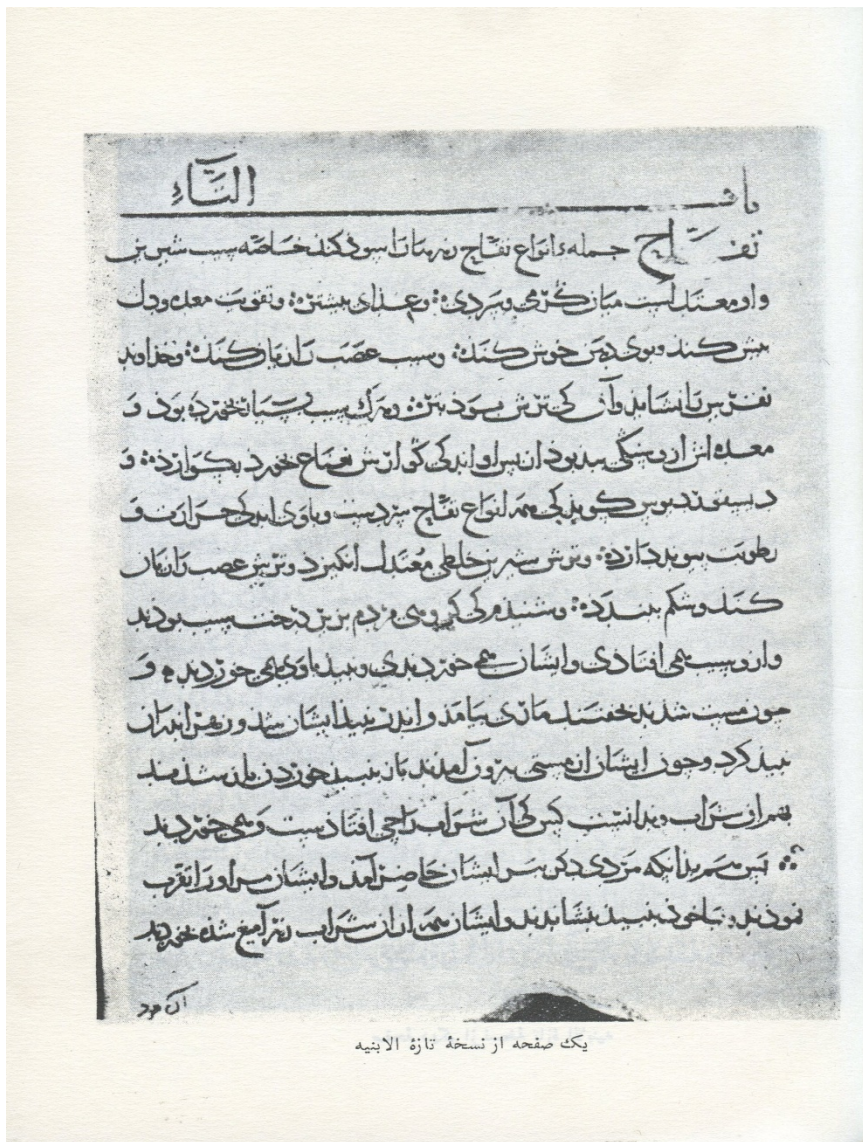 باب التاء
تفاح جمله انواع تفاح زهرها را سود کند خاصه سیب شیرین
و او معتدلست میان گرمی و سردی؛ و غذای بیشتره؛ و تقویت معده و دل
بیش کند و بوی دهن خوش کند؛ و سیب عصب را زیان کند؛ و خداوند
نقرس را نشاید و آن کی ترش بود بتر؛ و هرک سیب بسیار خورده بود و
معده اش از وسنگی شده بود از پس او اندکی گوارش نعناع خورد بگوارد؛ و
دیسقوریدوس گوید کی همه انواع تفاح سردست و باوی اندکی حرارت و
رطوبت سوید دارد؛ و ترش شیرین خلطی معتدل انگیزد و ترش عصب را زیان
کند و شکم ببندد؛ و شنیدم کی گروهی مردم بزیر درخت سیب بودند
و از و سیب همی افتادی و ایشان همی خوردندی و نبیذ باوی همی خوردند و
چون مست شدند بخفتند ماری بیامد و اندر نبیذ ایشان شد و زهر اندران
نبیذ کرد و چون ایشان از مستی بیرون آمدند باز بنبیذ خوردن بازشدند
بهم از شراب و ندانست کس کی آن شراب را چی افتادست و همی خوردند
پس همیدانکه مردی دگر بسر ایشان حاضر آمد و ایشان مر او را تقرب
نمودند و بنبیذ بنشاندند و ایشان همه ازان شراب زهرآمیغ شده خوردند
آن مرد
یک صفحه از نسخهٔ تازهٔ الابنیه